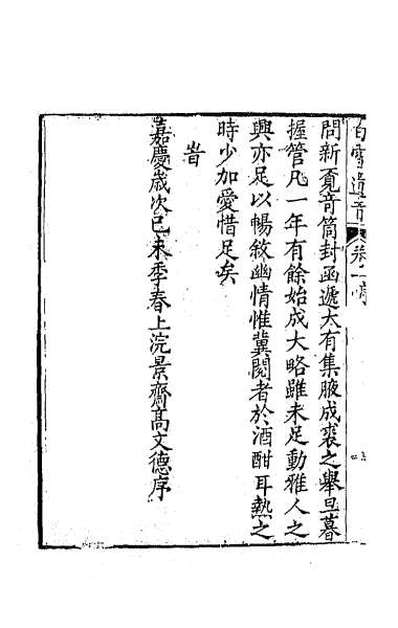 白雪遺音 卷一序
問新覔竒筒封函遞大有集腋成裘之舉旦暮
握管凡一年有餘始成大略雖未足動雅人之
興亦足以暢敘幽情惟冀閱者於酒酣耳熱之
時少加愛惜足矣
旹
嘉慶歲次己未季春上浣景齋高文德序